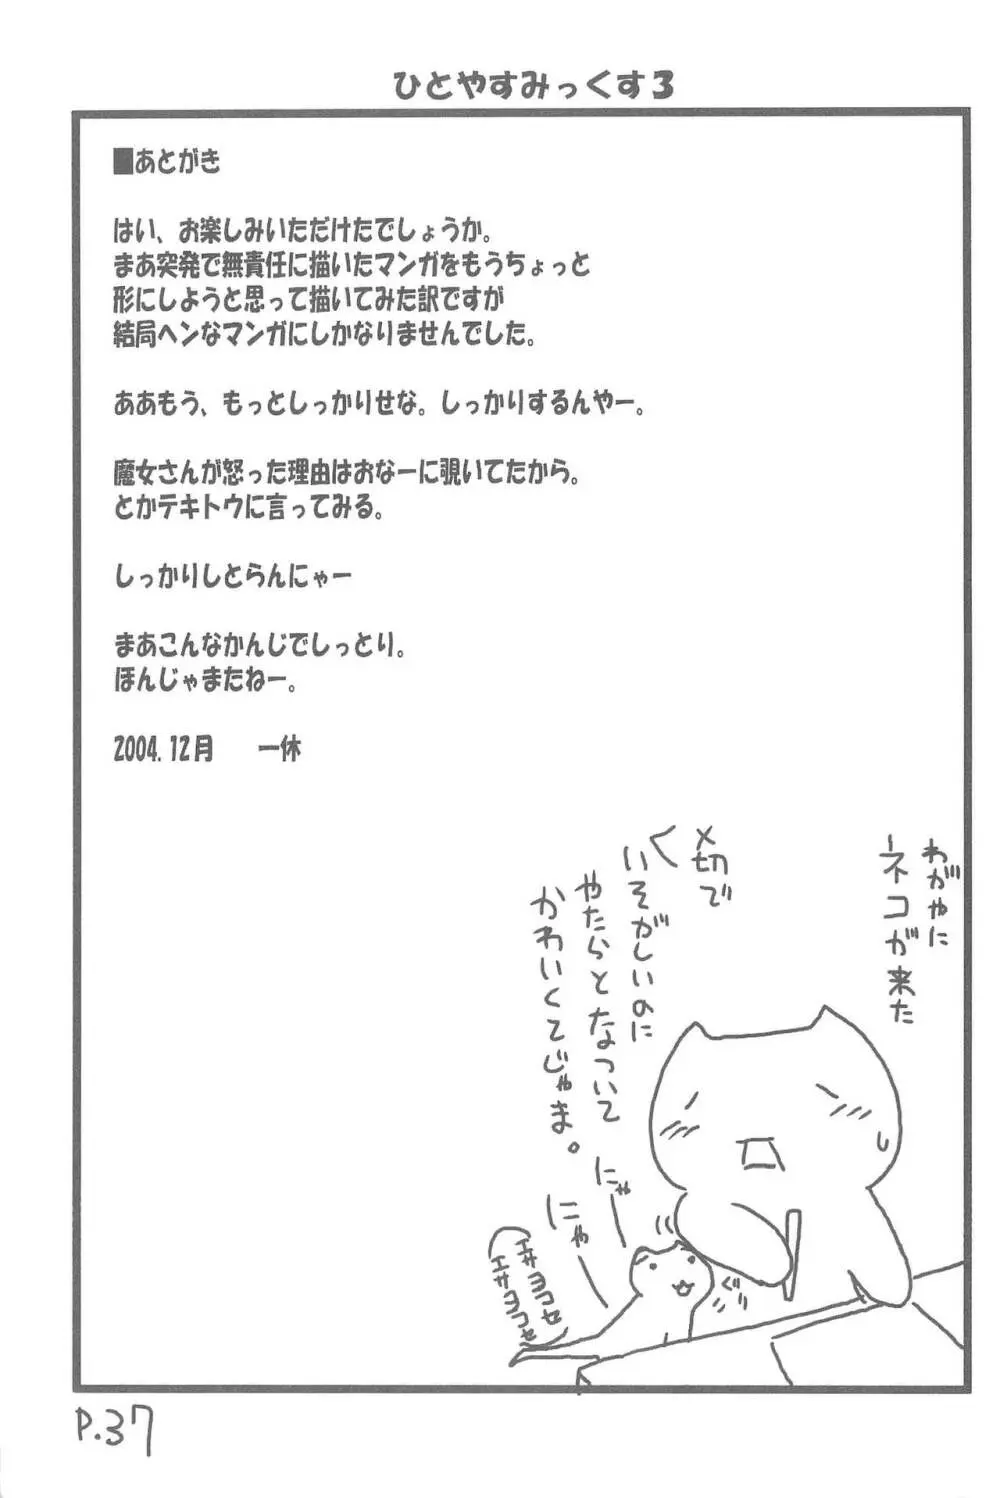 ひとやすみっくす3
■あとがき
はい、お楽しみいただけたでしょうか。
まあ突発で無責任に描いたマンガをもうちょっと
形にしようと思って描いてみた訳ですが
結局ヘンなマンガにしかなりませんでした。
ああもう、もっとしっかりせな。しっかりするんやー。
魔女さんが怒った理由はおなーに覗いてたから。
とかテキトウに言ってみる。
しっかりしとらんにゃー
まあこんなかんじでしっとり。
ほんじゃまたねー。
2004.12月　一休
わがやに
ネコが来た
〆切で
いそがしいのに
やたらとなついて
かわいくてじゃま。
にゃー
にゃー
エサヨコセ
エサヨコセ
ぐりぐり
P.37